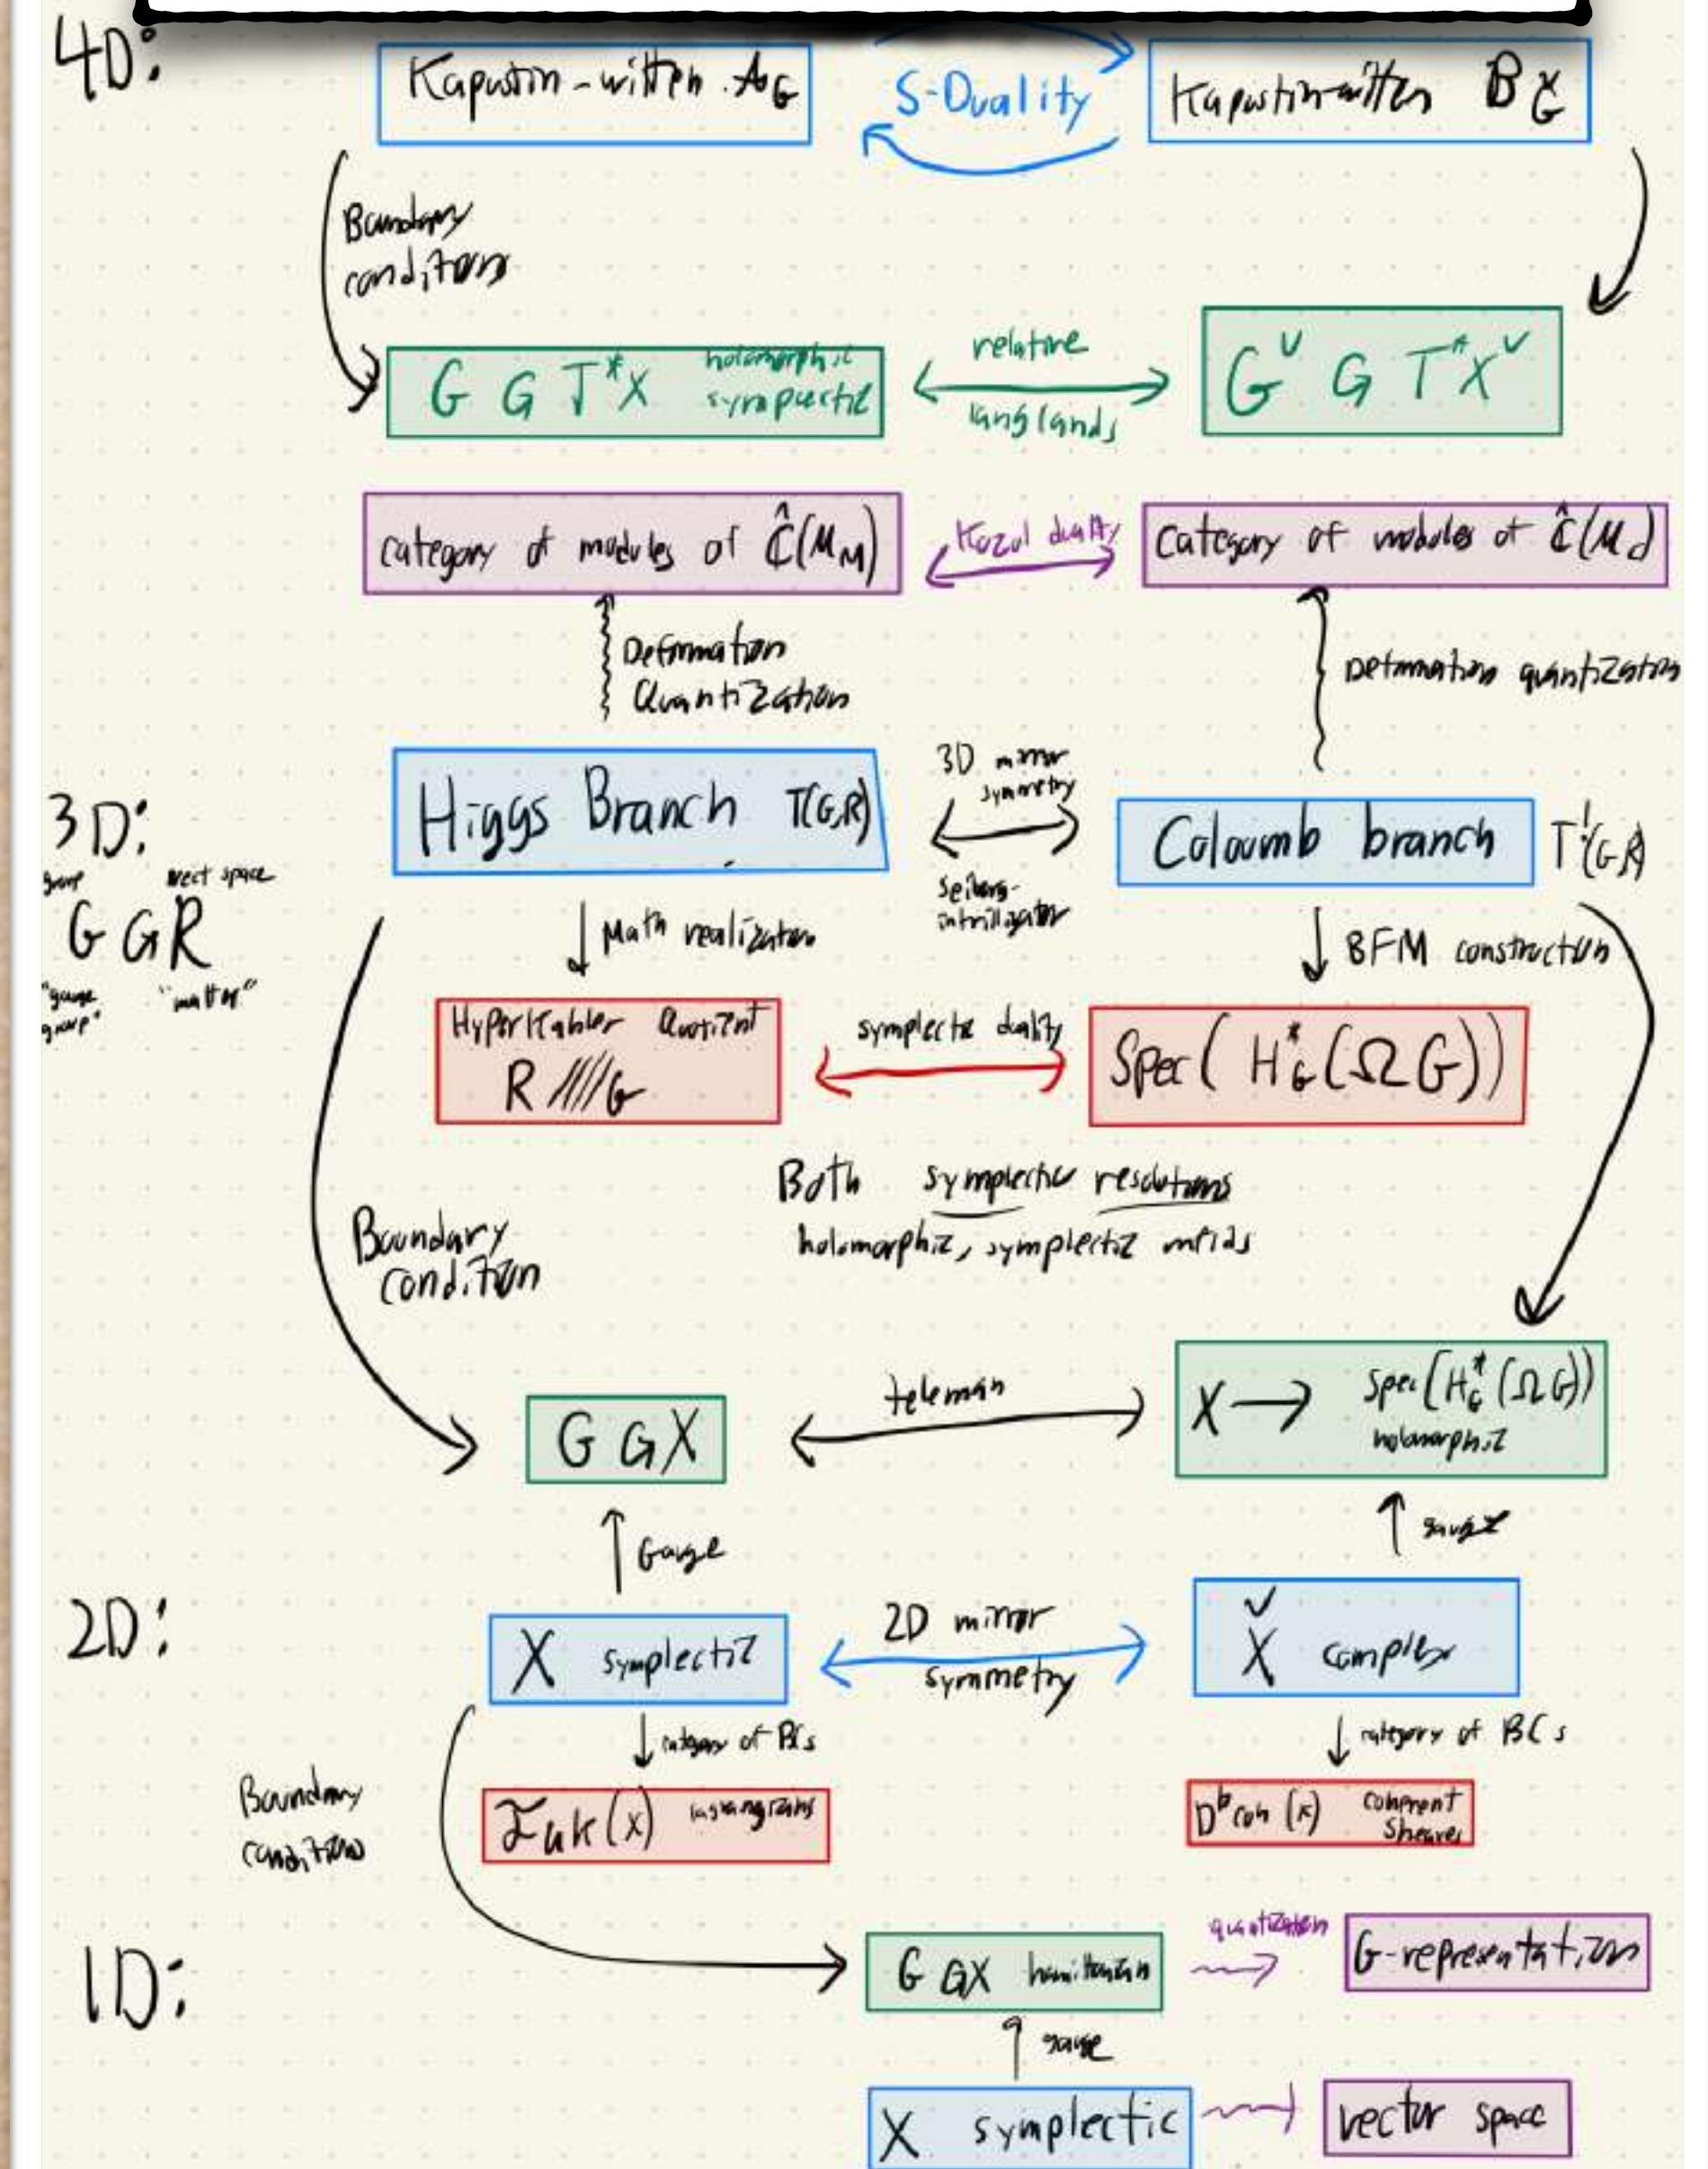 4D:
Kapustin-witten A_G
S-Duality
Kapustin-witten B_Ğ
Boundary
conditions
G G T*X holomorphic
symplectic
relative
langlands
G^∨ G T*X^∨
category of modules of Ĉ(M_M)
Kozul duality
Category of modules of Ĉ(M_c)
Deformation
Quantization
Deformation quantization
3D:
group vect space
G G R
"gauge
group"
"matter"
Higgs Branch T(G,R)
3D mirror
symmetry
Seiberg-
intrilligator
Coloumb branch T^!(G,R)
Math realization
BFM construction
HyperKahler Quotient
R ////G
symplectic duality
Spec( H*_G (ΩG))
Both symplectic resolutions
holomorphic, symplectic mflds
Boundary
condition
G G X
teleman
X → Spec(H*_G (ΩG))
holomorphic
Gauge
gauge
2D:
X symplectic
2D mirror
symmetry
X̌ complex
category of BCs
category of BCs
Boundary
condition
Fuk(X) lagrangians
D^b Coh (X) coherent
sheaves
1D:
G G X hamiltonian
quantization
G-representation
gauge
X symplectic
vector space